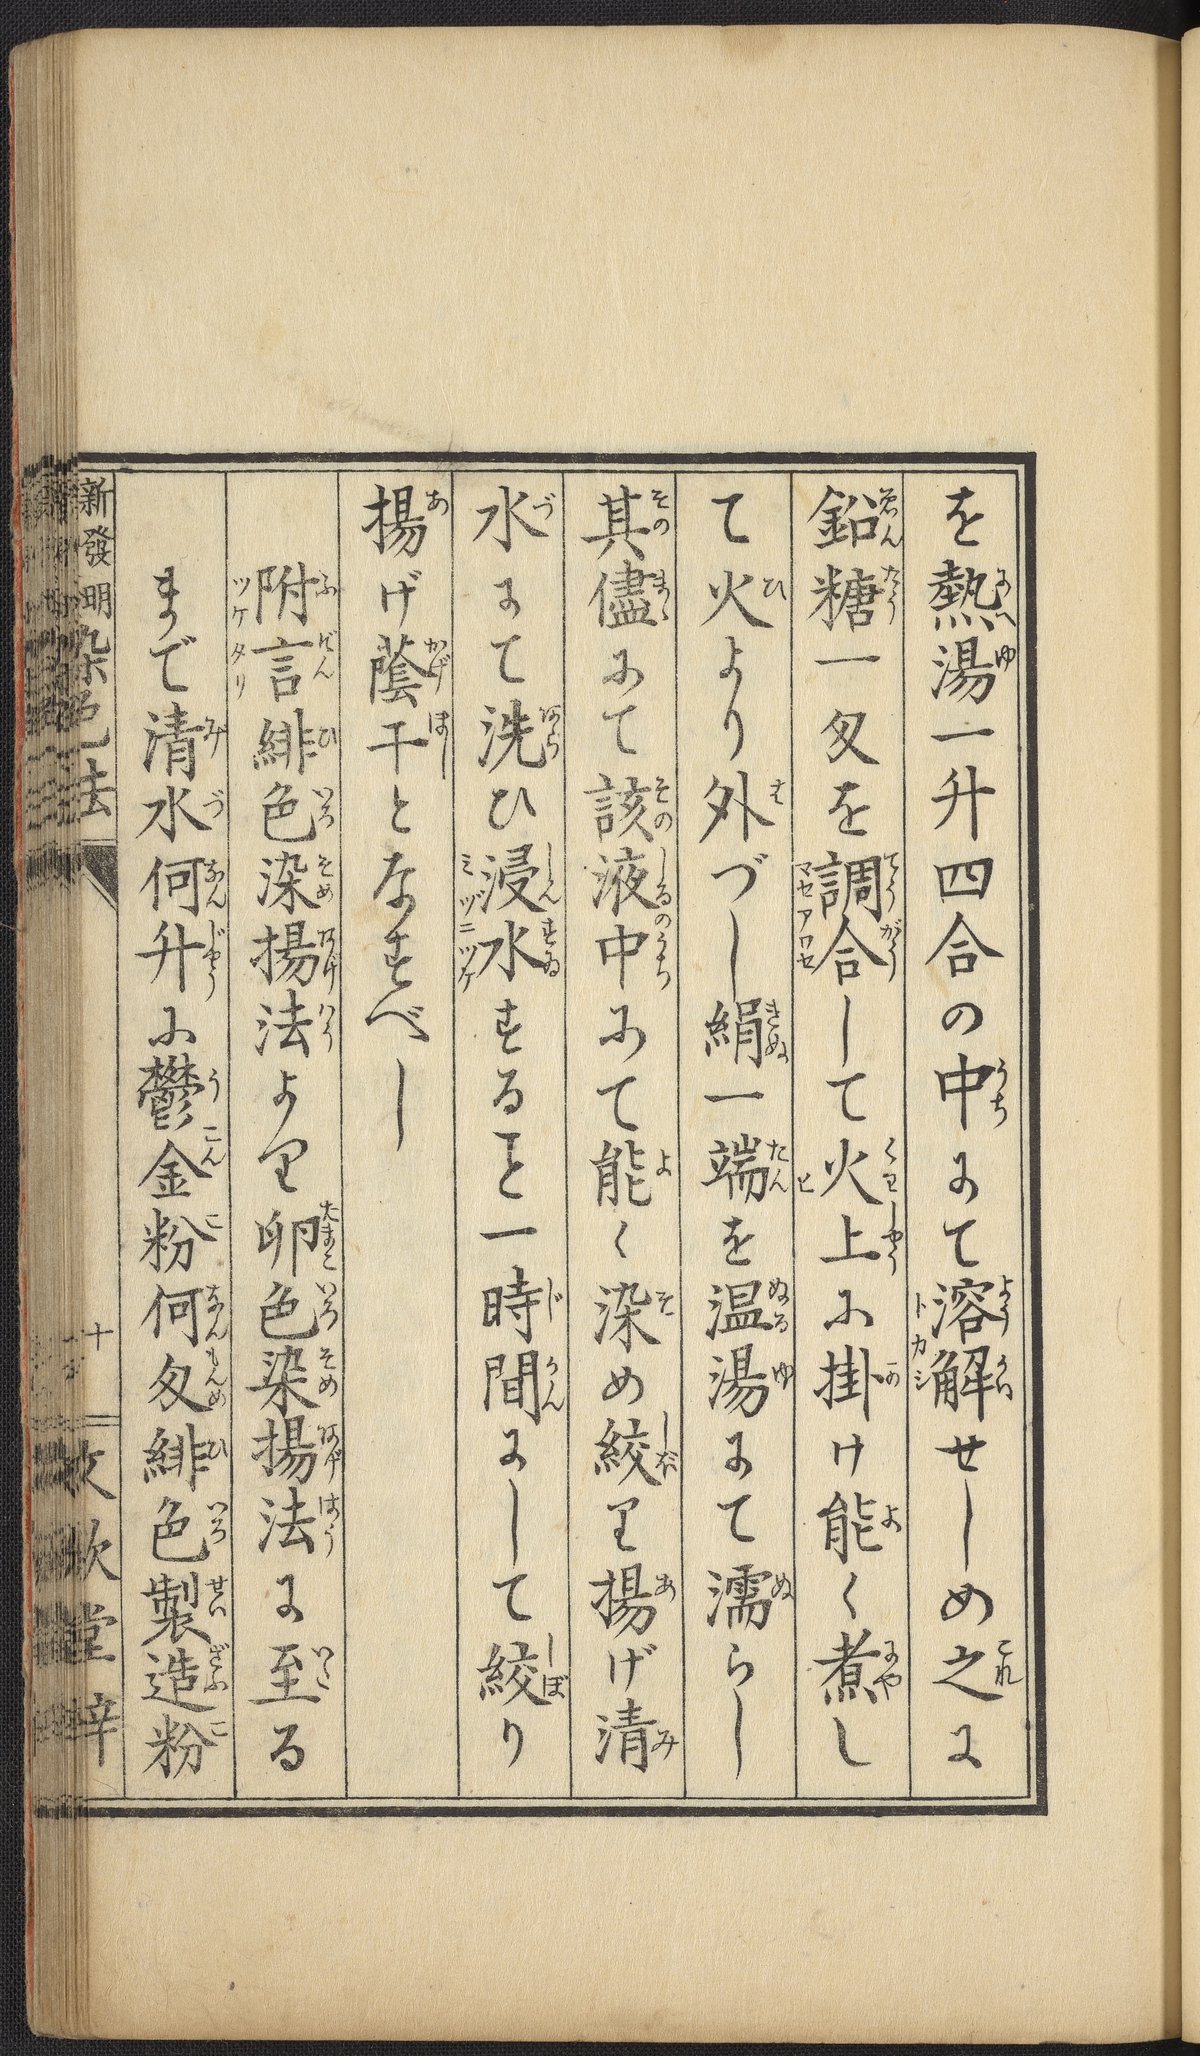 を熱湯一升四合の中にて溶解せしめ之に
鉛糖一匁を調合して火上に掛け能く煮し
て火より外づし絹一端を温湯にて濡らし
其儘にて該液中にて能く染め絞り揚げ清
水にて洗ひ浸水すること一時間にして絞り
揚げ蔭干となすべし
附言緋色染揚法より卵色染揚法に至る
まで清水何升に鬱金粉何匁緋色製造粉
新發明染色法
十